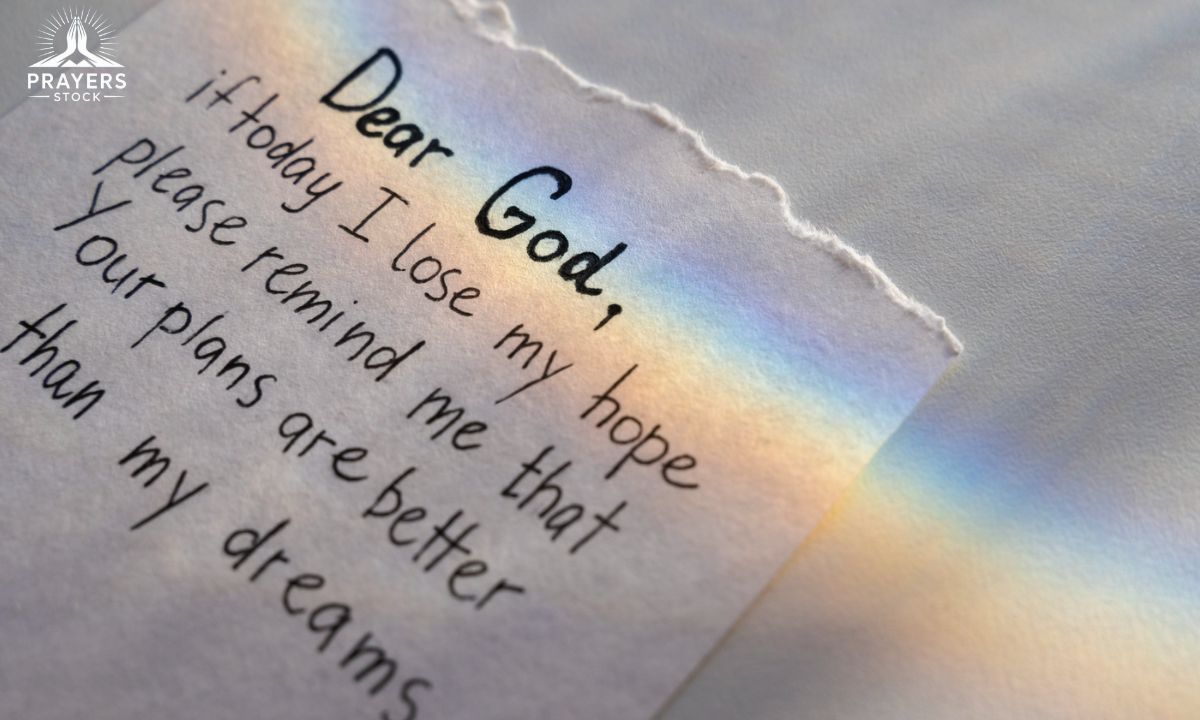 PRAYERS
STOCK
Dear God,
if today I lose my hope
please remind me that
Your plans are better
than my dreams